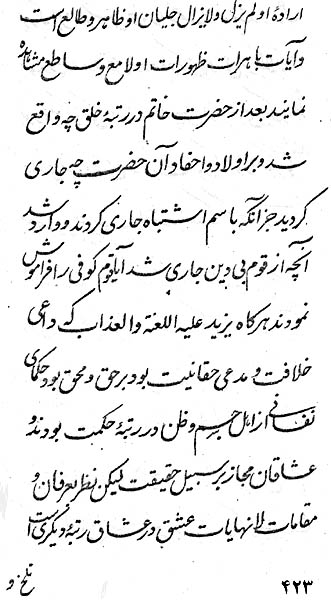 اراده او لم یزل و لایزال جلیان او ظاهر و طالع است
و آیات باهرات ظهورات او لامع و ساطع مشاهده
نمایند بعد از حضرت خاتم در رتبهٔ خلق چه واقع
شد و بر اولاد و احفاد آن حضرت چه جاری
گردید جز انکه باسم اشتباه جاری کردند و وارد شد
آنچه از قوم بی دین جاری شد آیا قوم کوفی را فراموش
نمودند هر کاه یزید علیه اللعنة و العذاب که داعی
خلافت و مدعی حقانیت بود بر حق و محق بود حکمای
از اهل جسم و ظن در رتبهٔ حکمت بودند و
عاشقان مجاز بر سبیل حقیقت لیکن نظر بعرفان و
مقامات لانهایات عشق در عشاق رتبهٔ دیگری است
۴۲۳
تلخ و